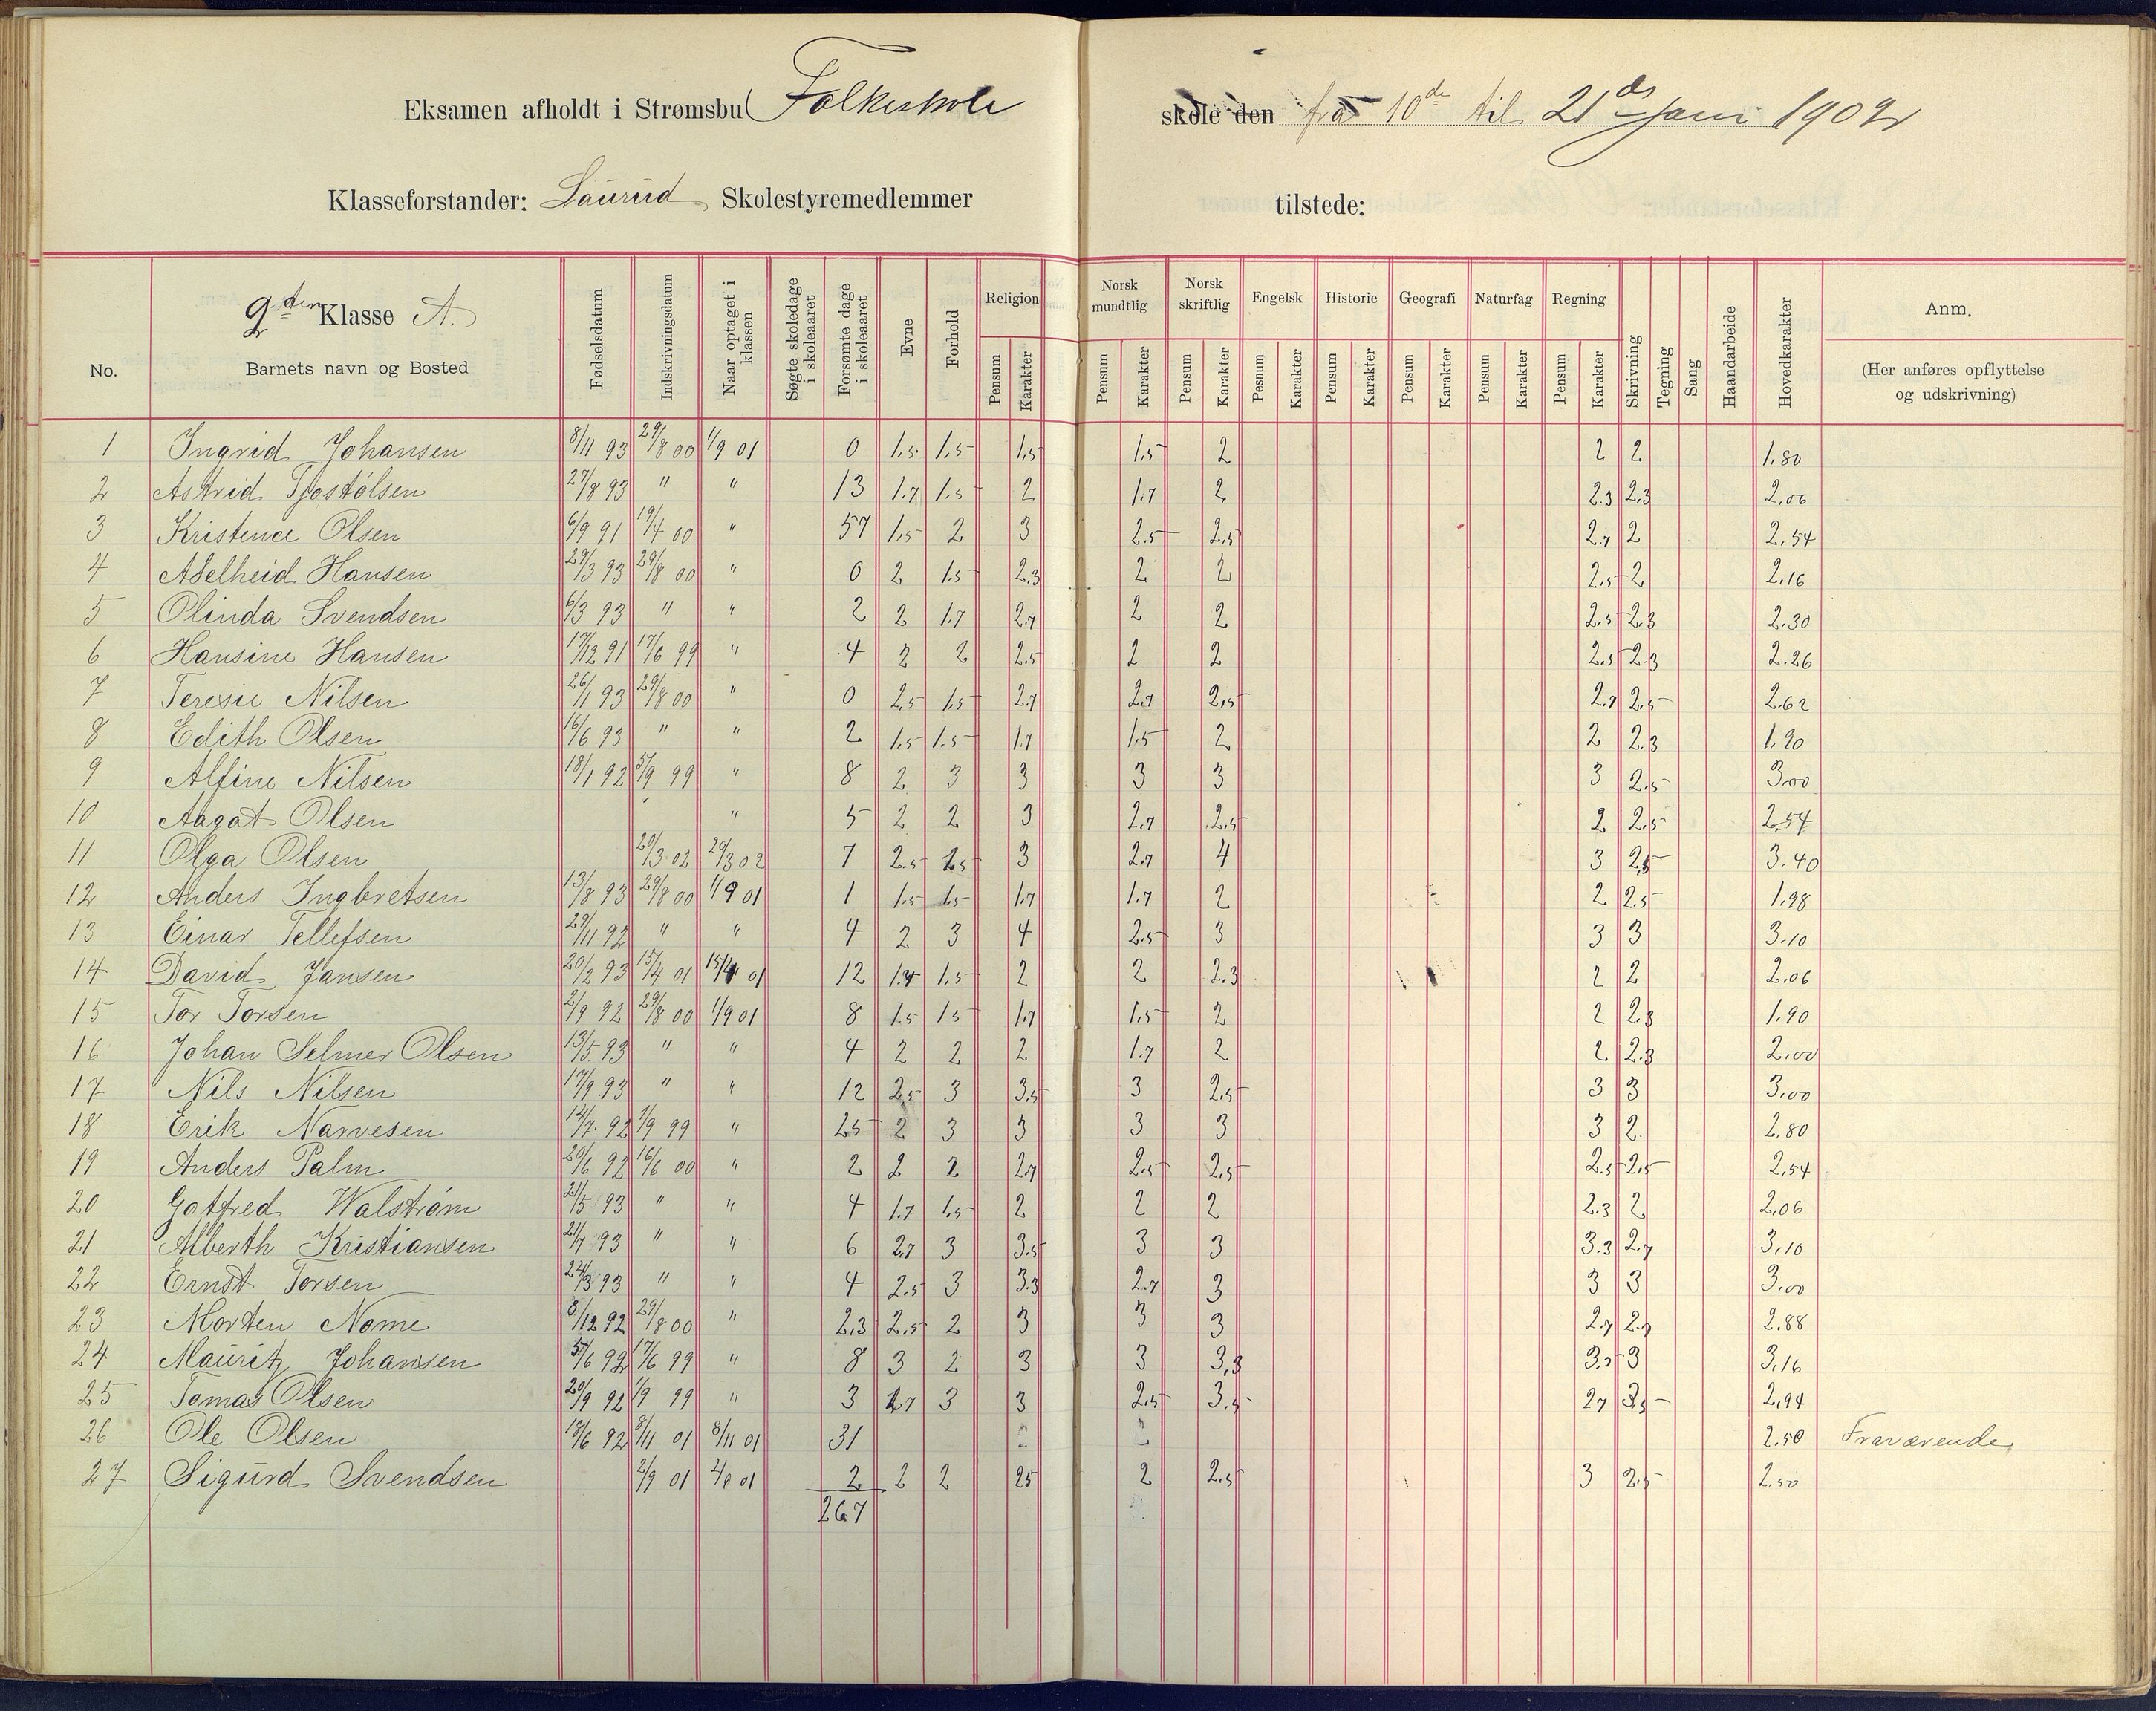 Eksamen afholdt i Strømsbu Folkeskole skole den fra 10de til 21de Juni 1902
Klasseforstander: Saurud Skolestyremedlemmer tilstede:
No. 2den Klasse A. Barnets navn og Bosted Fødselsdatum Indskrivningsdatum Naar optaget i klassen Søgte skoledage i skoleaaret Forsømte dage i skoleaaret Evne Forhold Religion Pensum Karakter Norsk mundtlig Pensum Karakter Norsk skriftlig Pensum Karakter Engelsk Pesnum Karakter Historie Pensum Karakter Geografi Pensum Karakter Naturfag Pensum Karakter Regning Pensum Karakter Skrivning Tegning Sang Haandarbeide Hovedkarakter Anm. (Her anføres opflyttelse og udskrivning)
1 Ingrid Johansen 8/11 93 29/8 00 1/9 01 0 1.5 1.5 1.5 1.5 2 2 2 1.80
2 Astrid Tjøstølsen 27/8 93 " " 13 1.7 1.5 2 1.7 2 2.3 2.3 2.06
3 Kristence Olsen 6/9 91 19/4 00 " 57 1.5 2 3 2.5 2.5 2.7 2 2.54
4 Adelheid Hansen 29/3 93 29/8 00 " 0 2 1.5 2.3 2 2 2.5 2 2.16
5 Olinda Svendsen 6/3 93 " " 2 2 1.7 2.7 2 2 2.5 2.3 2.30
6 Hansine Hansen 17/12 91 17/6 99 " 4 2 2 2.5 2 2 2.5 2.3 2.26
7 Teresie Nilsen 26/1 93 29/8 00 " 0 2.5 1.5 2.7 2.7 2.5 2.7 2.5 2.62
8 Edith Olsen 16/6 93 " " 2 1.5 1.5 1.7 1.5 2 2 2.3 1.90
9 Alfine Nilsen 18/1 92 5/9 99 " 8 2 3 3 3 3 3 2.5 3.00
10 Aagat Olsen " 5 2 2 3 2.7 2.5 2 2.5 2.54
11 Olga Olsen 20/3 02 20/3 02 7 2.5 2.5 3 2.7 4 3 2.5 3.40
12 Anders Ingbretsen 13/8 93 29/8 00 1/9 01 1 1.5 1.5 1.7 1.7 2 2 2.5 1.98
13 Einar Tellefsen 29/11 92 " " 4 2 3 4 2.5 3 3 3 3.10
14 David Jansen 20/2 93 15/4 01 15/4 01 12 1.5 2 2 2.3 2 2 2.06
15 Tor Torsen 2/9 92 29/8 00 1/9 01 8 1.5 1.5 1.7 1.5 2 2 2.3 1.90
16 Johan Selmer Olsen 13/5 93 " " 4 2 2 2 1.7 2 2 2.3 2.00
17 Nils Nilsen 17/9 93 " " 12 2.5 3 3.5 3 2.5 3 3 3.00
18 Erik Narvesen 14/7 92 1/9 99 " 25 2 3 3 3 3 3 2 2.80
19 Anders Palm 20/6 92 16/6 00 " 2 2 2 2.7 2.5 2.5 2.5 2.5 2.54
20 Gotfred Walstrøm 21/5 93 " " 4 1.7 1.5 2 2 2 2.3 2 2.06
21 Alberth Kristiansen 21/7 93 " " 6 2.7 3 3.5 3 3 3.3 2.7 3.10
22 Ernst Torsen 24/3 93 " " 4 2.5 3 3.3 2.7 3 3 3 3.00
23 Morten Nome 8/12 92 29/8 00 " 23 2.5 2 3 3 3 2.7 2.7 2.88
24 Mauritz Johansen 5/6 92 17/6 99 " 8 3 2 3 3 3.3 3.5 3 3.16
25 Tomas Olsen 20/9 92 1/9 99 " 3 2.7 3 3 2.5 3.5 2.7 3.5 2.94
26 Ole Olsen 18/6 92 8/11 01 8/11 01 31 2.50 Fraværende
27 Sigurd Svendsen 2/9 01 2/9 01 2 2 2 2.5 2 2.5 3 2.5 2.50
267